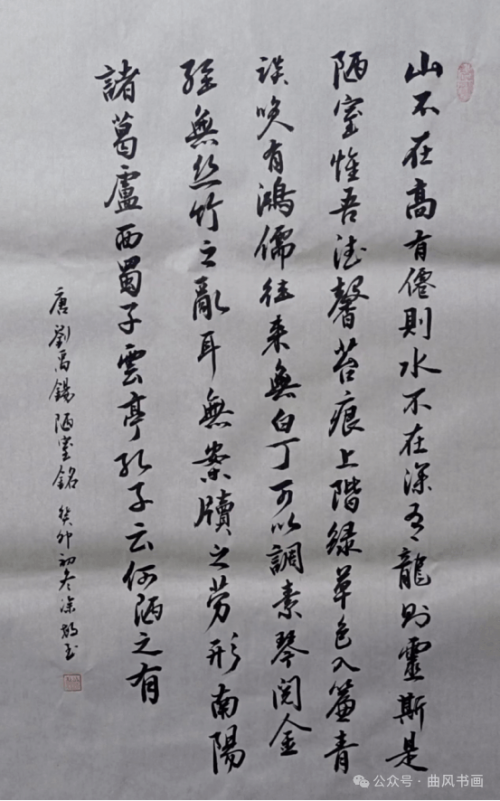 山不在高有僊則水不在深有龍则靈斯是
陋室惟吾德馨苔痕上階緑草色入簾青
談咲有鴻儒往来無白丁可以調素琴閲金
经無丝竹之亂耳無案牘之劳形南陽
諸葛廬西蜀子雲亭孔子云何陋之有
唐劉禹錫陋室銘 癸卯初冬涂书
公众号·曲风书画